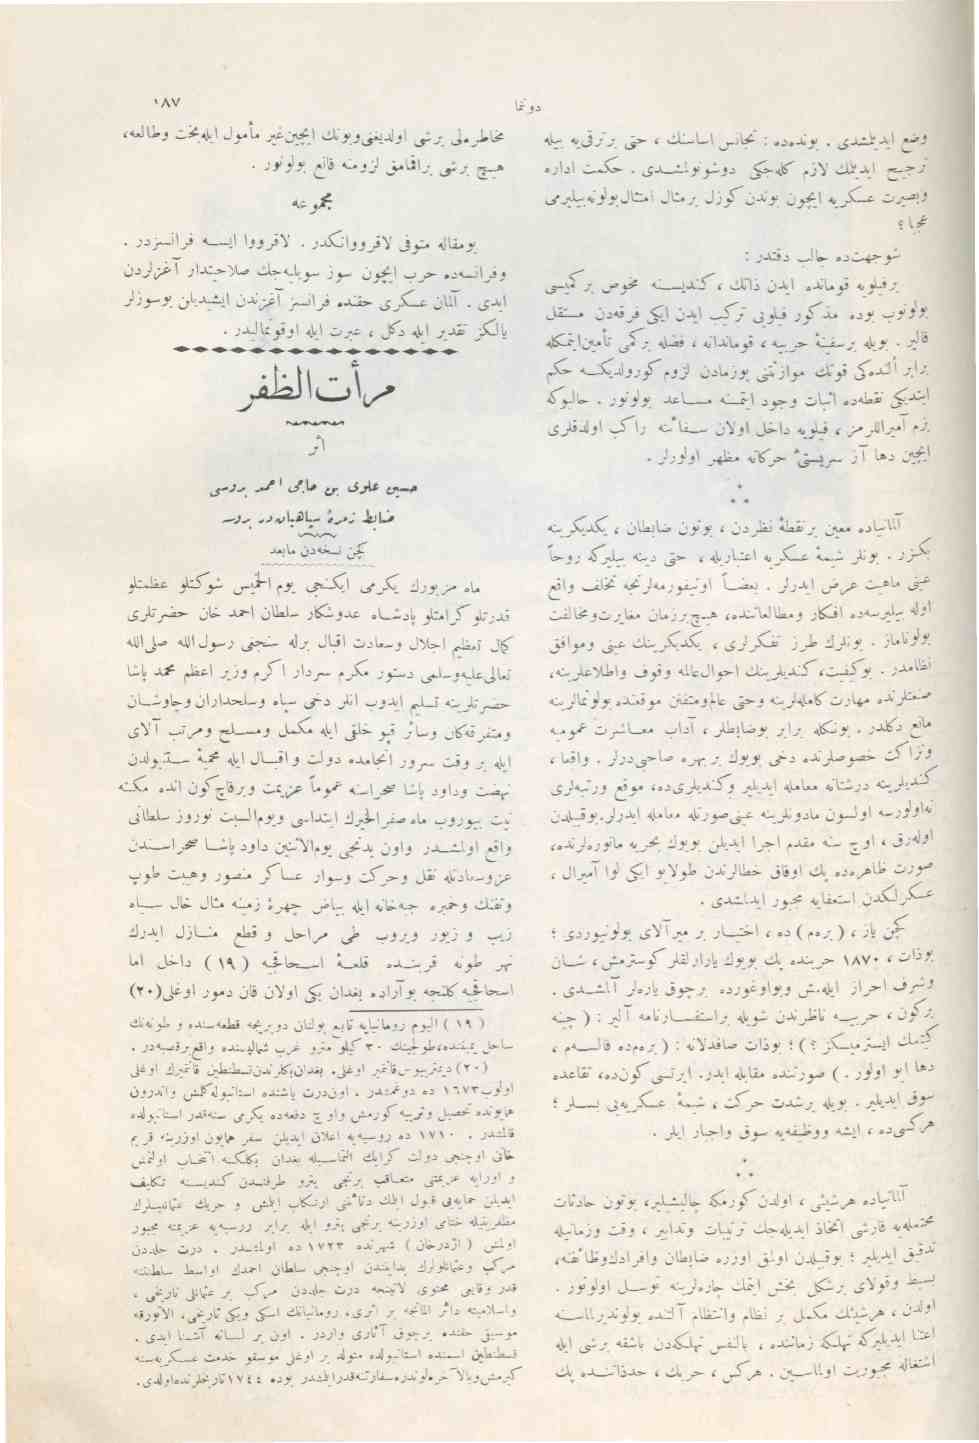 دوننما
١٨٧
وضع ايديلمشدى . بونده‌ده : تجانس اساسنك ، حتى بر ترقى‌يه بيله
ترجيح ايديلمك لازم كله‌جكى دوشونولمشدى . حكمت اداره
وبصيرت عسكريه ايچون بوندن كوزل بر مثال امتثال بولونه‌بيليرمى
عجبا ؟
شوجهت‌ده جالب دقتدر :
برفيلويه قومانده ايدن ذاتك ، كنديسنه مخصوص بر كميسى
بولونوب بوده مذكور فيلويى تركيب ايدن ايكى فرقه‌دن مستقل
قالير . بويله بر سفينهٔ حربيه ، قوماندانه ، فضله بركمى تأمين‌ايتمكله
برابر ألنده‌كى قوتك موازنتنى بوزمادن لزوم كورولديكنه حكم
ايتديكى نقطه‌ده اثبات وجود ايتمنه مساعد بولونور . حالبوكه
بزم آميراللرمز ، فيلويه داخل اولان سفائنه راكب اولدقلرى
ايچين دها آز سربستىٔ حركاته مظهر اولورلر .
*
* *
آلمانياده معين بر نقطهٔ نظردن ، بوتون ضابطان ، يكديكرينه
بكزر . بونلر شيمهٔ عسكريه اعتباريله ، حتى دينه بيليركه روحاً
عينى ماهيت عرض ايدرلر . بعضاً اونيفورمه‌لرنجه تخلف واقع
اوله بيليرسه‌ده افكار ومطالعاتنده ، هيچ برزمان مغايرت‌ومخالفت
بولوناماز . بونلرك طرز تفكرلرى ، يكديكرينك عينى وموافق
نظامدر . بوكيفيت، كنديلرينك احوال‌عالمه وقوف واطلاعلرينه،
صنعتلرنده مهارت كامله‌لرينه وحتى عالم‌ومتفنن موقعنده بولونمالرينه
مانع دكلدر . بونكله برابر بوضابطلر ، آداب معاشرت عموميه
ونزاكت خصوصلرنده دخى بويوك بر بهره صاحبى‌درلر . واقعا ،
كنديلرينه درشتانه معامله ايديلير وكنديلرى‌ده، موقع ورتبه‌لرى
نه‌اولورسه اولسون مادونلرينه عينى‌صورتله معامله ايدرلر.بوقبيلدن
اوله‌رق ، اوچ سنه مقدم اجرا ايديلن بويوك بحريه مانوره‌لرنده،
صورت ظاهره‌ده پك اوفاق خطالرندن طولايى ايكى لوا آميرال ،
عسكرلكدن استعفايه مجبور ايدلمشدى .
كچن ياز ، ( بره‌م ) ده ، اختيار بر ميرآلاى بولونيوردى ؛
بوذات ، ١٨٧٠ حربنده پك بويوك يارارلقلر كوسترمش ، شان
وشرف احراز ايله‌مش وبواوغورده برچوق ياره‌لر آلمشدى .
بركون ، حربيه ناظرندن شويله براستفسارنامه آلير : ( چينه
كيتمك ايسترميسكز ؟ ) ؛ بوذات صافدلانه : ( بره‌مده قالسه‌م ،
دها ايو اولور . ) صورتنده مقابله ايدر. ايرتسى كون‌ده، تقاعده
سوق ايديلير . بويله برشدت حركت ، شيمهٔ عسكريه‌يى بسلر ؛
هركسى‌ده ، ايشه ووظيفه‌يه سوق واجبار ايلر .
*
* *
آلمانياده هرشيئى ، اولدن كورمكه چاليشيلير، بوتون حادثات
محتمله‌يه قارشى اتخاذ ايديله‌جك ترتيبات وتدابير ، وقت وزمانيله
تدقيق ايديلير ؛ بوقبيلدن اولمق اوزره ضابطان وافرادك‌وظائفنه،
بسيط وقولاى برشكل بخش ايتمك چاره‌لرينه توسل اولونور .
اولدن ، هرشيئك مكمل بر نظام وانتظام آلتنده بولوندیرلماسنه
اعتنا ايديليركه تهلكه زماننده ، بالنفس تهلكه‌دن باشقه برشى ايله
اشتغاله مجبوريت اولماسين . هركس ، حربك ، حدذاتنده پك
مخاطره‌لى برشى اولديغنى‌وبونك ايچين‌غير مأمول ايله‌بخت وطالعه،
هيچ برشى براقمامق لزومنه قانع بولونور .
مجموعه
بومقاله متوفى لاقرووانكدر . لاقرووا ايسه فرانسزدر .
وفرانسه‌ده حرب ايچون سوز سويليه‌جك صلاحيتدار آغزلردن
ايدى . آلمان عسكرى حقنده فرانسز آغزندن ايشيديلن بوسوزلر
يالكز تقدير ايله دكل ، عبرت ايله اوقونماليدر .
مرأت‌الظفر
اثر
حسين علوى بن حاجى احمد بروسى
ضابط زمرهٔ سپاهيان در بروسه
كچن نسخه‌دن مابعد
ماه مزبورك يكرمى ايكنجى يوم الخميس شوكتلو عظمتلو
قدرتلو كرامتلو پادشاه عدوشكار سلطان احمد خان حضرتلرى
كمال تعظيم اجلال وسعادت اقبال برله سنجق رسول‌الله صلى‌الله
تعالى‌عليه‌وسلمى دستور مكرم سردار اكرم وزير اعظم محمد پاشا
حضرتلرينه تسليم ايدوب انلر دخى سپاه وسلحداران وچاوشان
ومتفرقه‌كان وسائر قپو خلقى ايله مكمل ومسلح ومرتب آلاى
ايله بر وقت سرور انجامده دولت واقبال ايله محميهٔ ستنبولدن
نهضت وداود پاشا صحراسنه عموماً عزيمت وبرقاچ‌كون انده مكثه
نيت بيوروب ماه صفرالخيرك ابتداسى ويوم‌السبت نوروز سلطانى
واقع اولمشدر واون يدنجى يوم‌الاثنين داود پاشا صحراسندن
عزوسعادتله نقل وحركت وسوار عساكر منصور وهيبت طوپ
وتفنك وخمبره جبه‌خانه ايله بياض چهرهٔ زمينه مثال خال سياه
زيب و زيور ويروب طى مراحل و قطع منازل ايدرك
نهر طونه قربنده قلعهٔ اسحاقجيه ( ١٩ ) داخل اما
اسحاقجيه كلنجه بوآراده بغدان بكى اولان قان دمور اوغلى(٢٠)
( ١٩ ) اليوم رومانيايه تابع بولنان دوبريجه قطعه‌سنده و طونه‌نك
ساحل يميننده،طولچينك ٣٠ كيلو مترو غرب شماليسنده واقع‌برقصبه‌در .
(٢٠) ديمتريوس‌قانتمير اوغلى. بغدان‌بكلرندن‌قسطنطين قانتميرك اوغلى
اولوب١٦٧٣ ده دوغمشدر . اون‌درت ياشنده استانبوله‌كلمش واندرون
همايونده تحصيل وتربيه كورمش واوچ دفعه‌ده يكرمى سنه‌قدر استانبولده
قالمشدر . ١٧١٠ ده روسيه‌يه اعلان ايديلن سفر همايون اوزرينه قريم
خانى اوچنجى دولت كرايك التماسيله بغدان بكلكنه انتخاب اولنمش
و اورايه عزيمتى متعاقب برنجى پترو طرفندن كنديسنه تكليف
ايديلن حمايه‌يى قبول ايتمك دنائتنى ارتكاب ايتمش و حربك عثمانليلرك
مظفريتيله ختامى اوزرينه برنجى پترو ايله برابر روسيه‌يه عزيمته مجبور
اولمش ( اژدرخان ) شهرنده ١٧٢٣ ده اولمشدر . درت جلددن
مركب وعثمانلولرك بدايتندن اوچنجى سلطان احمدك اواسط سلطنتنه
قدر وقايعى محتوى لاتينجه درت جلددن مركب بر عثمانلى تاريخى ،
واسلاميته دائر المانجه بر اثرى، رومانيانك اسكى ويكى تاريخى. الاتورقه
موسيقى حقنده برچوق آثارى واردر . اون بر لسانه آشنا ايدى .
قسطنطين اسمنده استانبولده متولد بر اوغلى موسقو خدمت عسكريه‌سنه
كيرمش‌وبالآخره‌لوندره‌سفارتنه‌قدرايلشدر بوده ١٧٤٤تاريخلرنده‌اولدى.